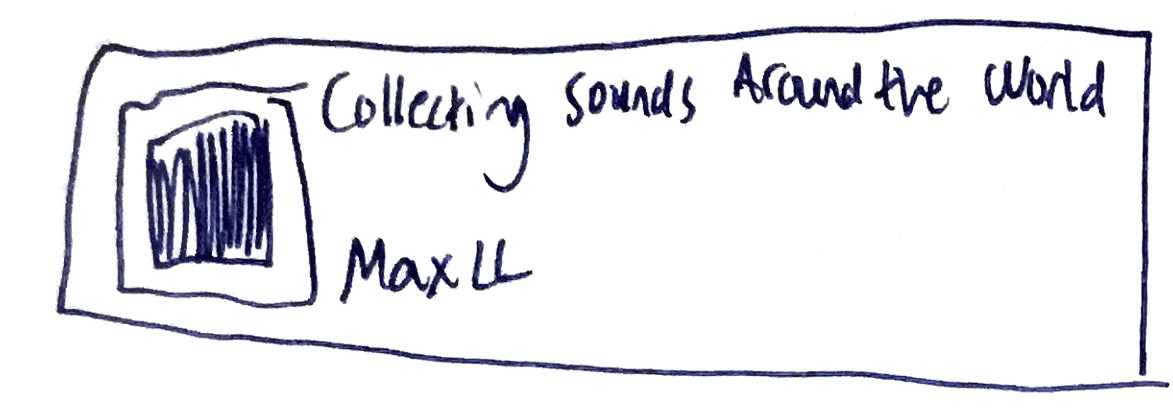 Collecting Sounds Around the World
Max LL